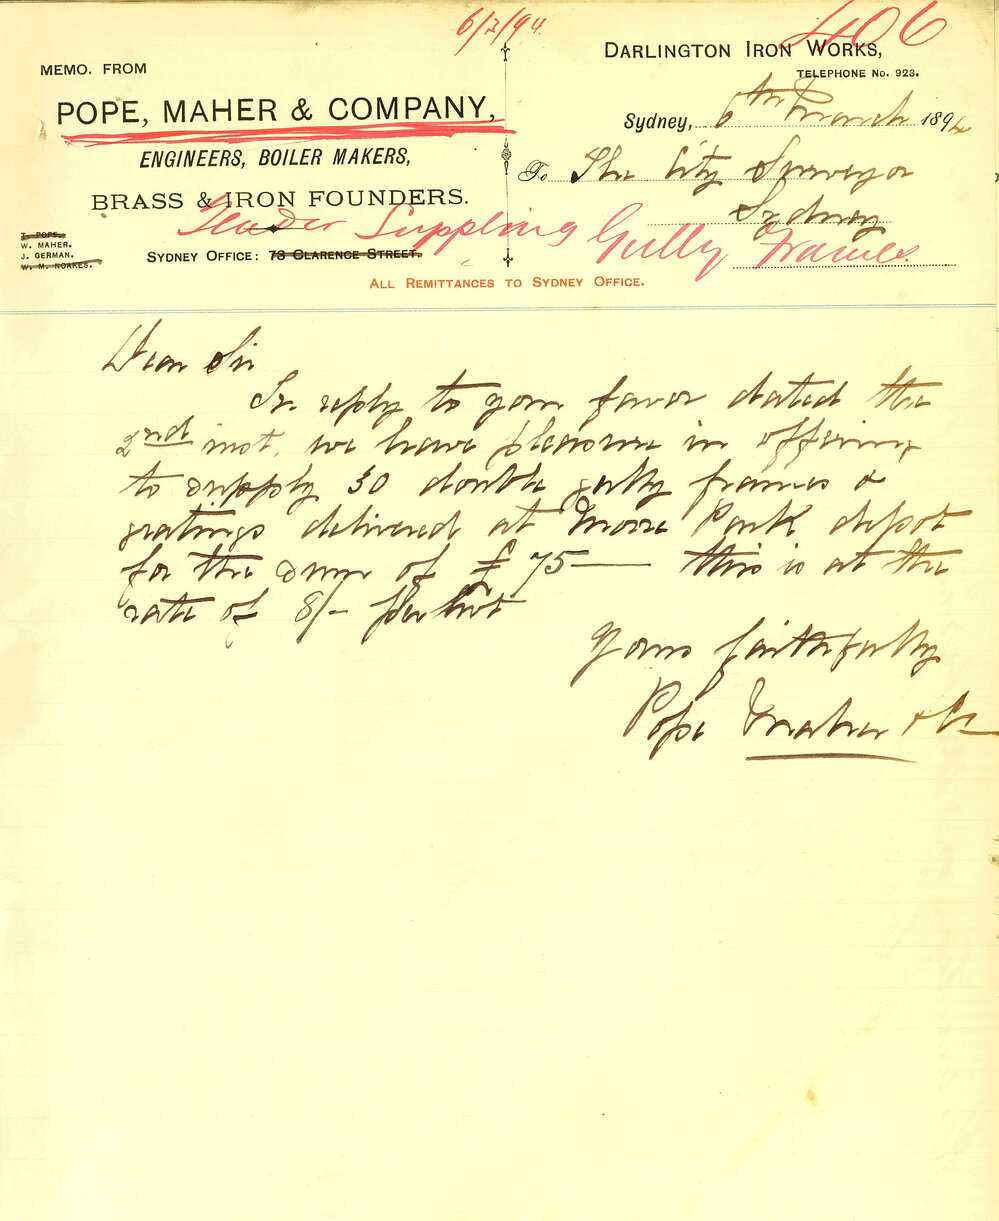 6/3/94
406
MEMO. FROM
POPE, MAHER & COMPANY,
ENGINEERS, BOILER MAKERS,
BRASS & IRON FOUNDERS.
T. POPE.
W. MAHER.
J. GERMAN.
W. M. NOAKES.
SYDNEY OFFICE: 73 CLARENCE STREET.
DARLINGTON IRON WORKS,
TELEPHONE No. 923.
Sydney, 6th March 1894
To The City Surveyor
Sydney
Tender Suppling Gully Frames
ALL REMITTANCES TO SYDNEY OFFICE.
Dear Sir
In reply to your favor dated the
2nd inst, we have pleasure in offering
to supply 30 double gully frames &
gratings delivered at Moore Park depot
for the sum of £75 — this is at the
rate of 8/- per cwt
Yours faithfully
Pope Maher & Co